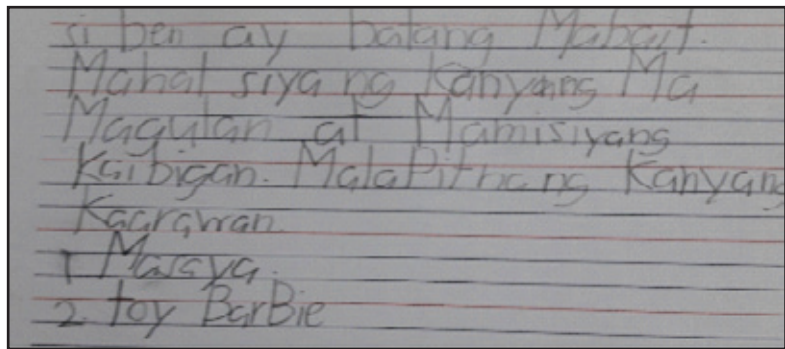 si ben ay batang Mabait.
Mahal siya ng Kanyang Ma
Magulan at Mamisiyang
Kaibigan. MalaPit na ng Kanyang
Kaarawan
1 Masaya.
2. toy BarBie